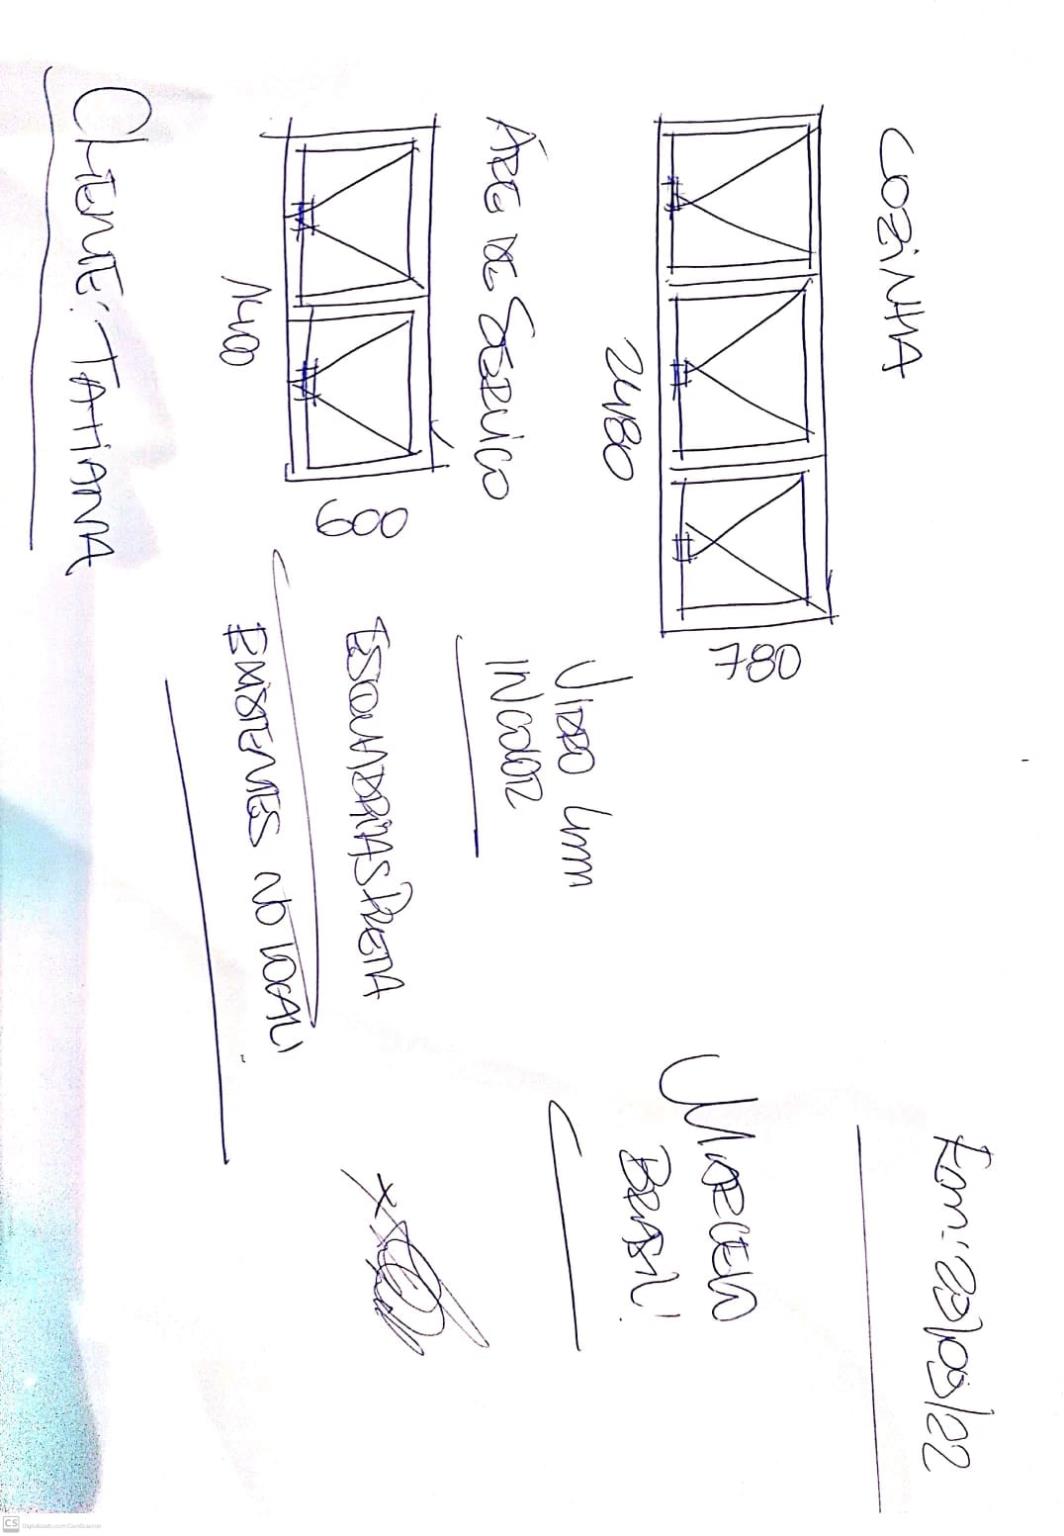 COZINHA
2480
780
ÁRE DE SERVICO
1400
600
CLIENTE: TATIANA
VIDRO 4mm
INCOLOR
ESQUADRIAS PRETA
EXISTENTES NO LOCAL
Em: 23/05/22
MARCELO
BRASIL
CS